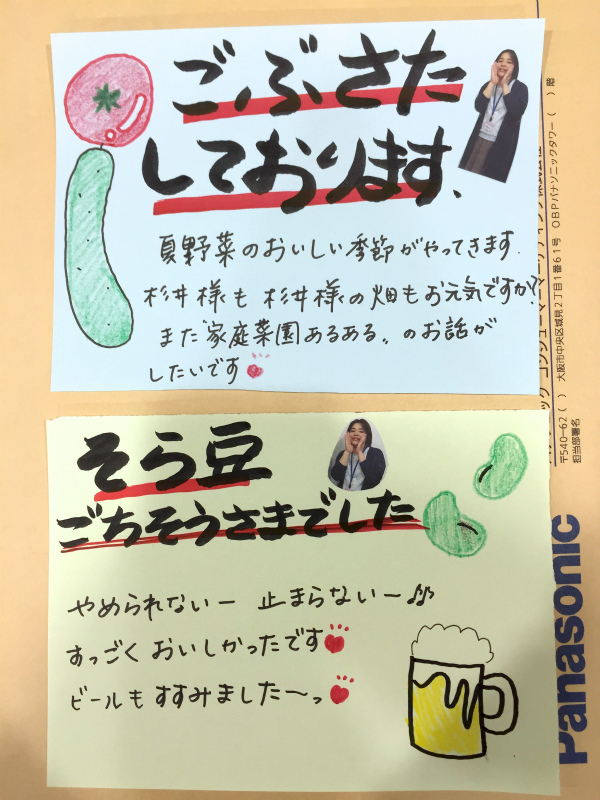 ごぶさた
しております、
夏野菜のおいしい季節がやってきます.
杉井様も 杉井様の畑もお元気ですか?
また“家庭菜園あるある”のお話が
したいです
そら豆
ごちそうさまでした
やめられないー 止まらないー♪
すっごく おいしかったです
ビールも すすみました〜っ
〒540-62( ) 大阪市中央区城見2丁目1番61号 OBPパナソニックタワー( )階
担当部署名
Panasonic